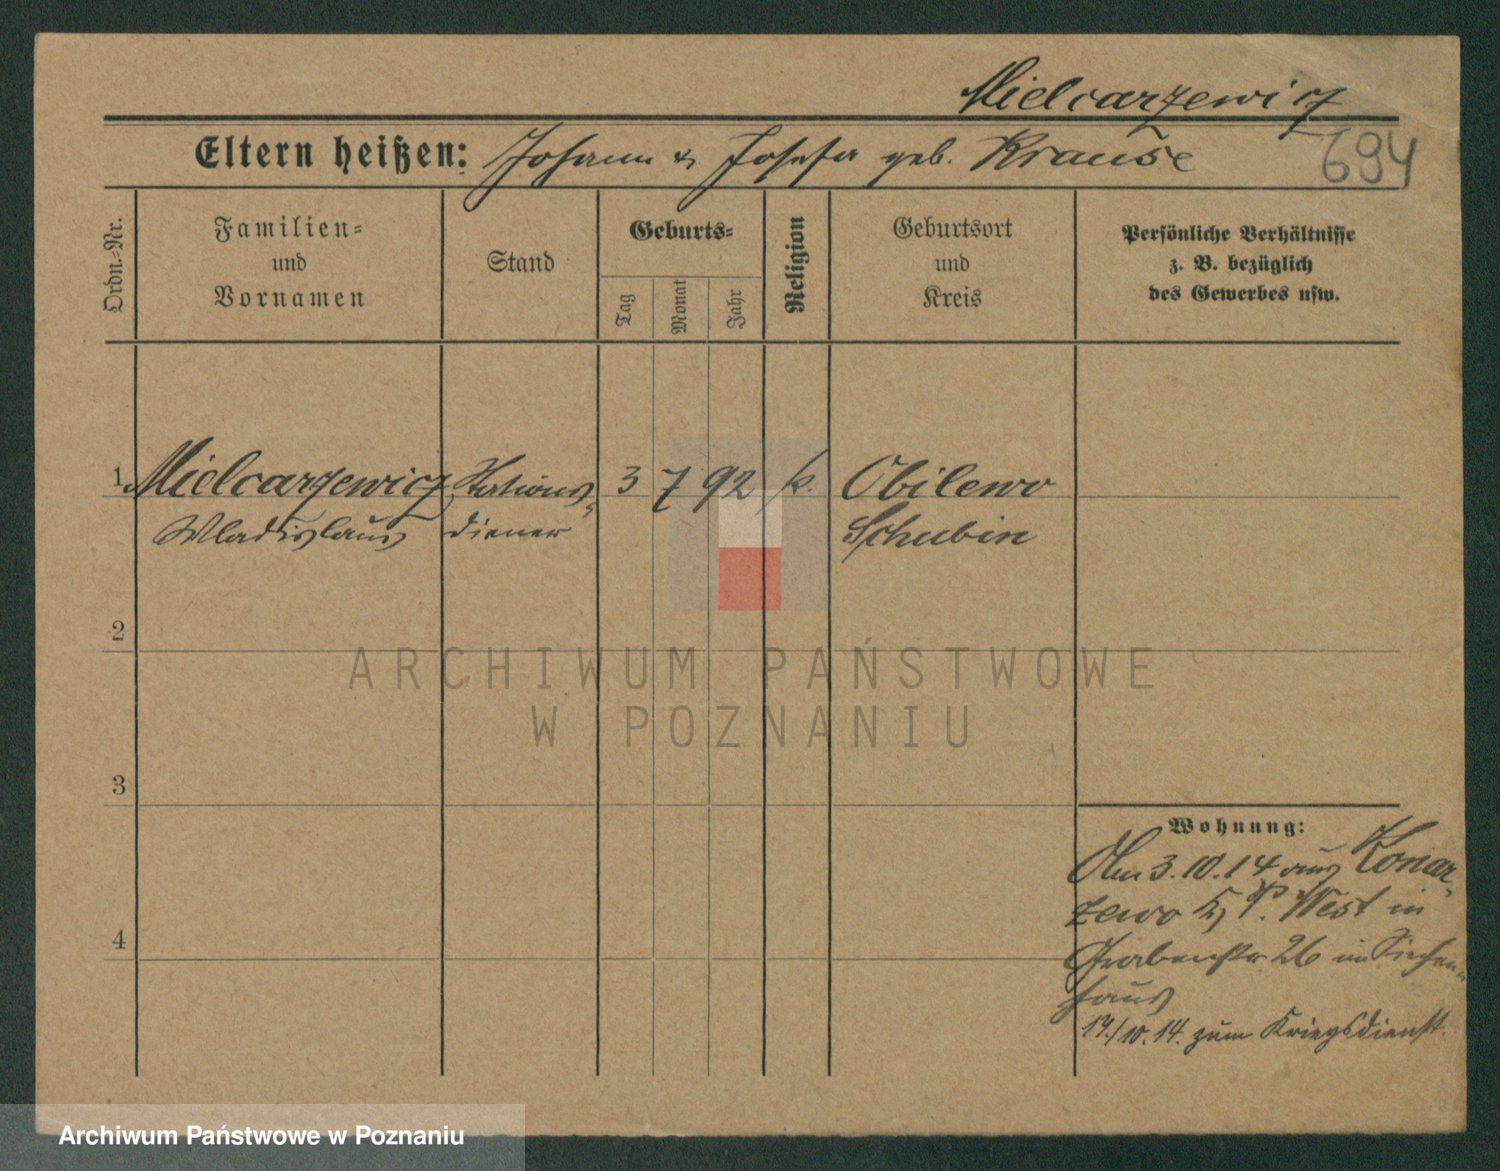 Mielcarzewicz
694
Eltern heißen: Johann & Josefa geb. Krause
Ordn.-Nr.
Familien-
und
Vornamen
Stand
Geburts-
Tag
Monat
Jahr
Religion
Geburtsort
und
Kreis
Persönliche Verhältnisse
z. B. bezüglich
des Gewerbes usw.
1 Mielcarzewicz Stations- 3 7 92 k. Obilewo
Wladislaus diener Schubin
2
ARCHIWUM PAŃSTWOWE
W POZNANIU
3
Wohnung:
Am 3.10.14 aus Konar-
zewo Kr P. West in
Grabenstr. 26 im Siechen-
haus
4
17/10.14. zum Kriegsdienst.
Archiwum Państwowe w Poznaniu